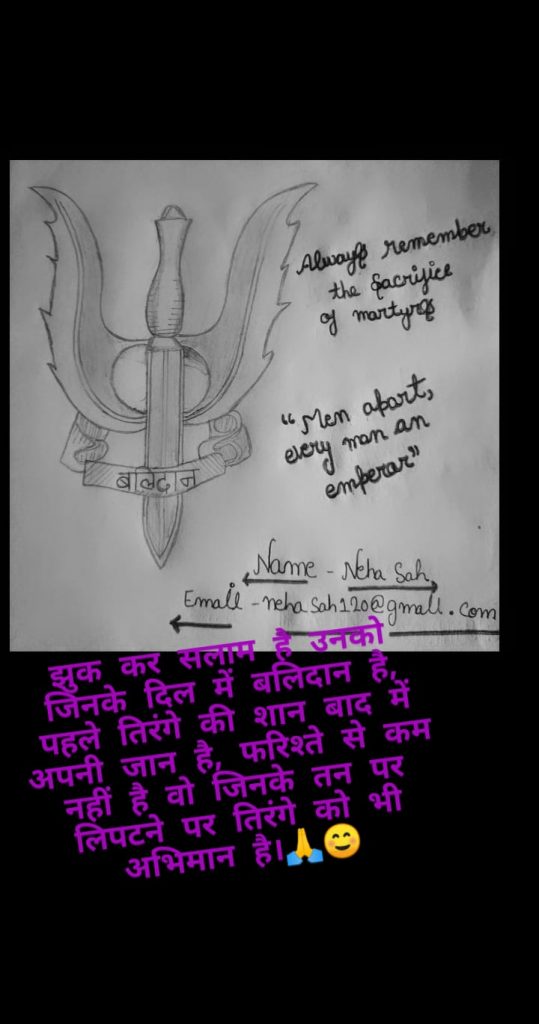 Always remember
the sacrifice
of martyrs
"Men apart,
every man an
emperar"
बलिदान
Name - Neha Sah
Email - nehasah120@gmail.com
झुक कर सलाम है उनको
जिनके दिल में बलिदान है,
पहले तिरंगे की शान बाद में
अपनी जान है, फरिश्ते से कम
नहीं है वो जिनके तन पर
लिपटने पर तिरंगे को भी
अभिमान है।🙏😊